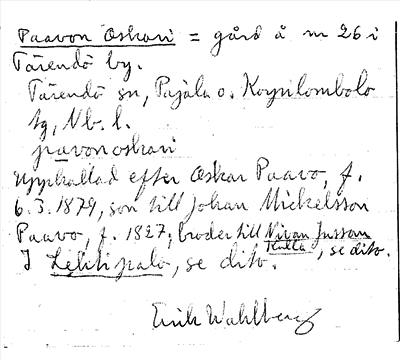 Paavon Oskari = gård å nr 26 i
Tärendö by.
Tärendö sn, Pajala o. Korpilombolo
tg, Nb. l.
pavonoskari
Upphallad efter Oskar Paavo, f.
6.3.1879, son till Johan Mickelsson
Paavo, f. 1827; broder till Nivan Jussan
Kalla, se dito.
I Lehtipalo, se dito.
Erik Wahlberg